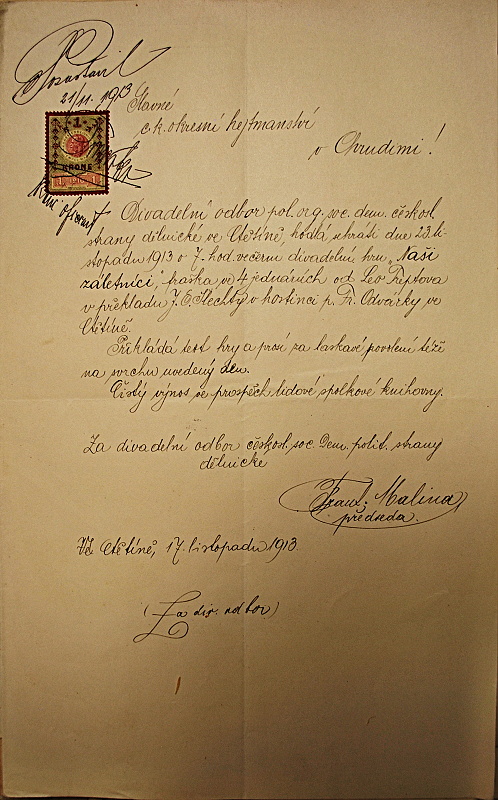 21/11. 1913
Slavné
c. k. okresní hejtmanství
v Chrudimi!
1
KRONE
1 1
Divadelní odbor pol. org. soc. dem. českosl.
strany dělnické ve Ctětíně, hodlá sehráti dne 23. li-
stopadu 1913 o 7. hod. večerní divadelní hru „Naši
záletníci", fraška ve 4 jednáních od Leo Treptova
v překladu J. O. Šlechty v hostinci p. Fr. Odvárky ve
Ctětíně.
Přikládá text hry a prosí za laskavé povolení téže
na svrchu uvedený den.
Čistý výnos ve prospěch lidové spolkové knihovny.
Za divadelní odbor českosl. soc. Dem. polit. strany
dělnické
Frant. Malina
předseda.
Ve Ctětíně, 17. listopadu 1913.
(Za div. odbor)